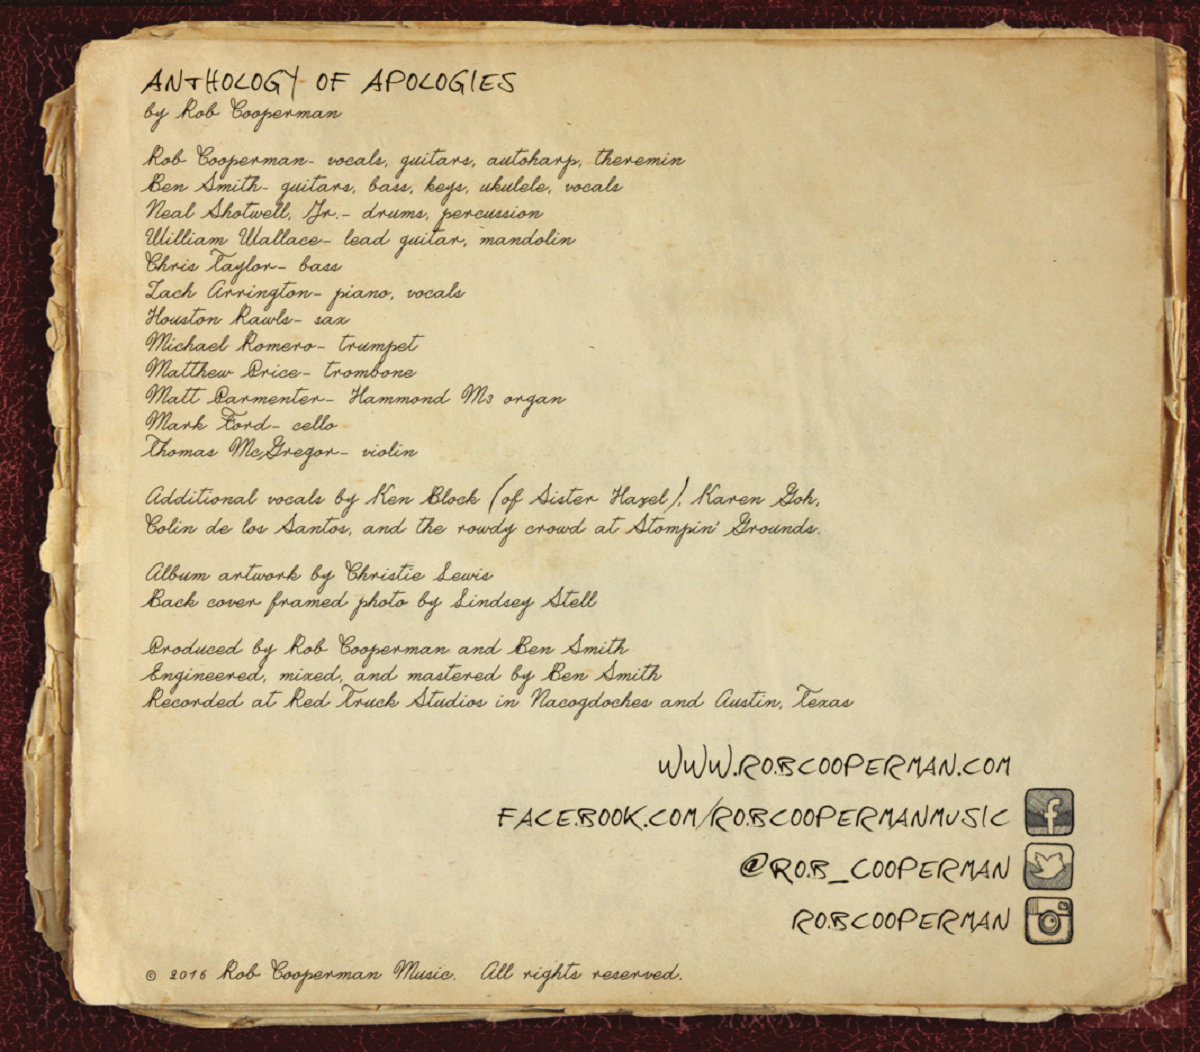 ANTHOLOGY OF APOLOGIES
by Rob Cooperman
Rob Cooperman- vocals, guitars, autoharp, theremin
Ben Smith- guitars, bass, keys, ukulele, vocals
Neal Shotwell, Jr.- drums, percussion
William Wallace- lead guitar, mandolin
Chris Taylor- bass
Zach Arrington- piano, vocals
Houston Rawls- sax
Michael Romero- trumpet
Matthew Price- trombone
Matt Parmenter- Hammond M3 organ
Mark Ford- cello
Thomas McGregor- violin
Additional vocals by Ken Block (of Sister Hazel), Karen Goh,
Colin de los Santos, and the rowdy crowd at Stompin' Grounds.
Album artwork by Christie Lewis
Back cover framed photo by Lindsey Stell
Produced by Rob Cooperman and Ben Smith
Engineered, mixed, and mastered by Ben Smith
Recorded at Red Truck Studios in Nacogdoches and Austin, Texas
WWW.ROBCOOPERMAN.COM
FACEBOOK.COM/ROBCOOPERMANMUSIC
@ROB_COOPERMAN
ROBCOOPERMAN
© 2016 Rob Cooperman Music. All rights reserved.